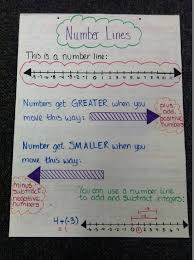 Number Lines
This is a number line:
Numbers get GREATER when you
move this way:
plus
add
positive
numbers
Number get SMALLER when you
move this way:
minus
subtract
negative
numbers
You can use a number line
to add and subtract integers:
4+(-3)